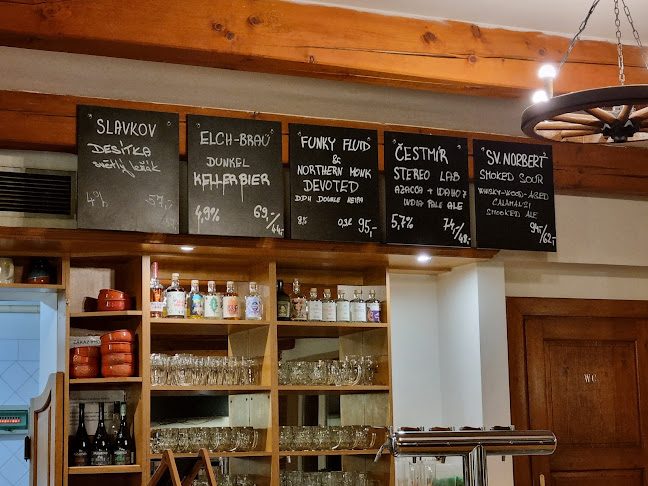 SLAVKOV
DESÍTKA
světlý ležák
4% 57,-
ELCH-BRÄU
DUNKEL
KELLERBIER
4,9% 69,-/44,-
FUNKY FLUID
&
NORTHERN MONK
DEVOTED
DDH DOUBLE NEIPA
8% 0,3l 95,-
ČESTMÍR
STEREO LAB
AZACCA + IDAHO 7
INDIA PALE ALE
5,7% 74,-/48,-
SV. NORBERT
SMOKED SOUR
WHISKY-WOOD-AGED
CALAMANSI
SMOOKED ALE
94,-/62,-
WC